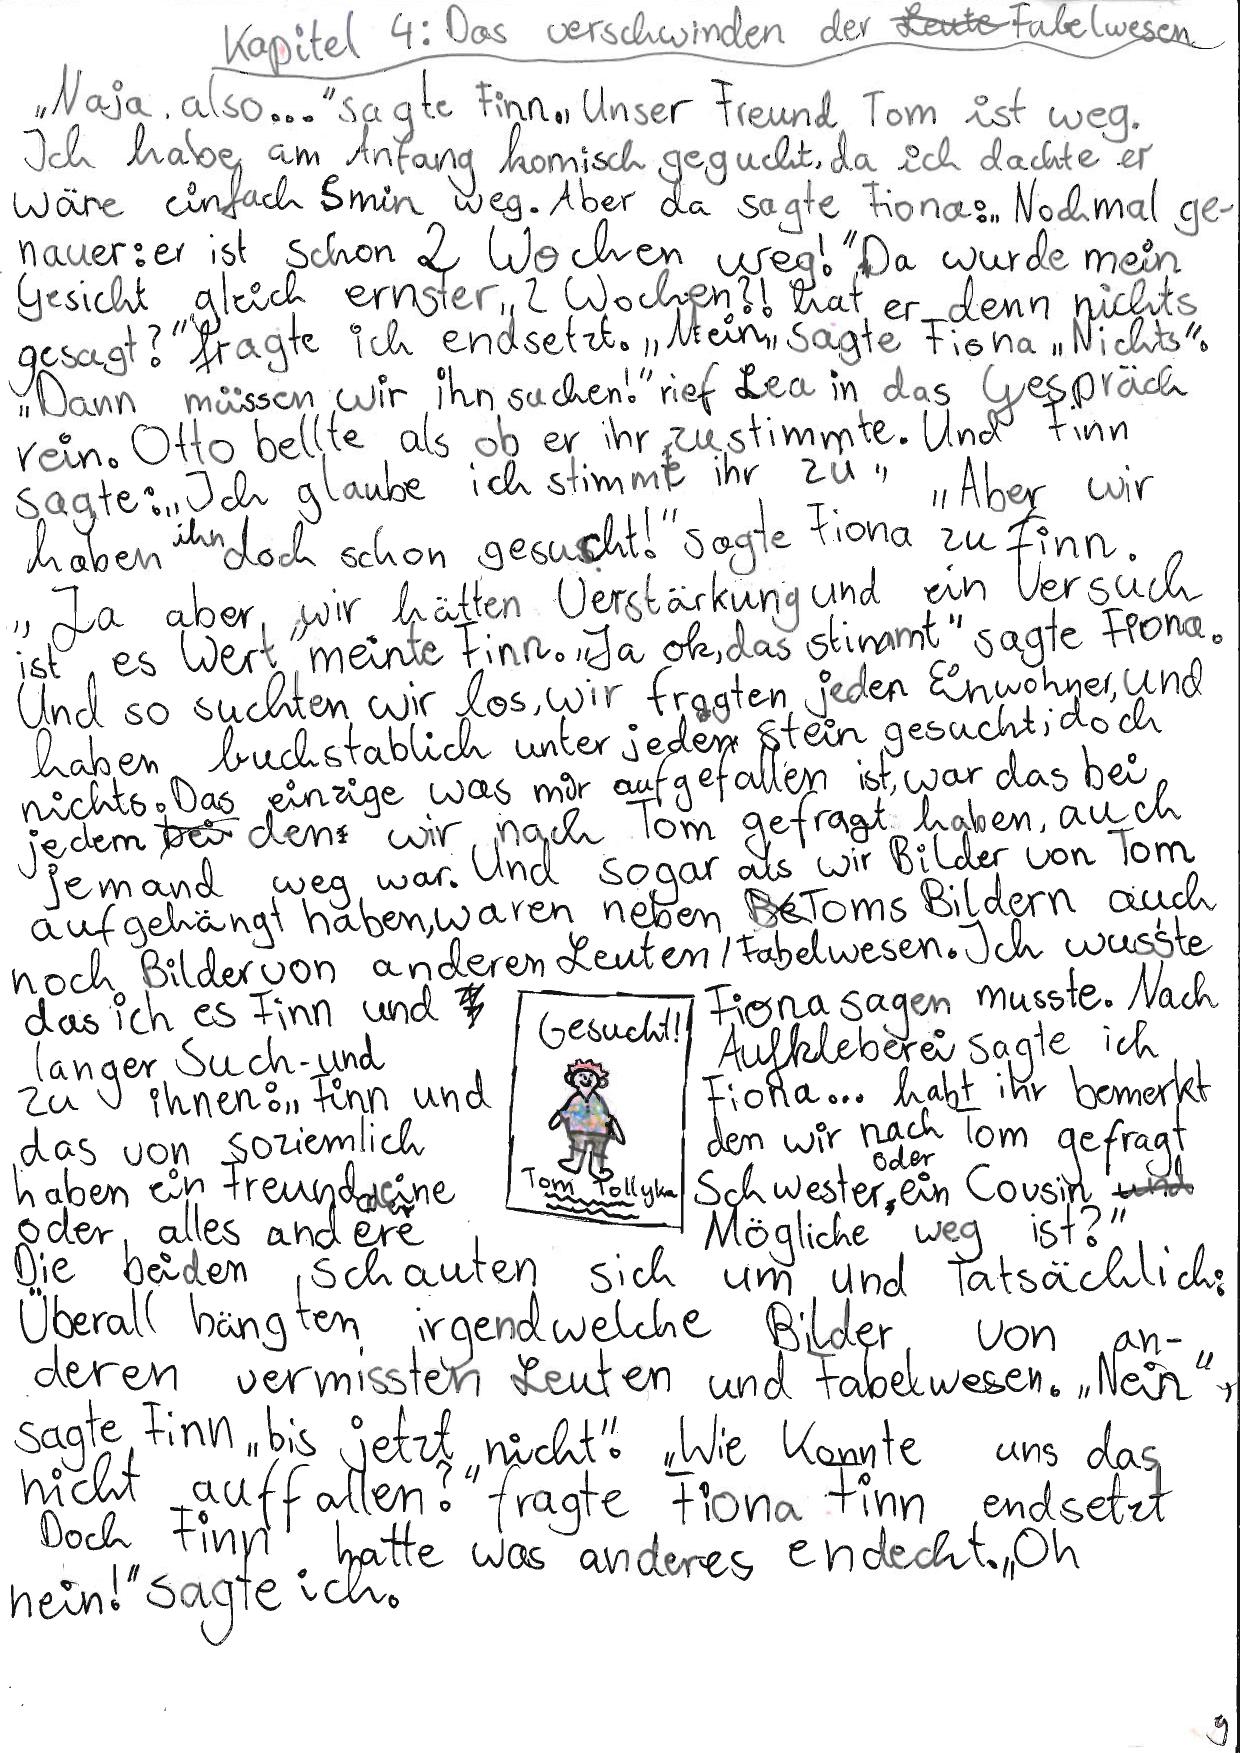 Kapitel 4: Das verschwinden der Leute Fabelwesen
„Naja, also..." sagte Finn. „Unser Freund Tom ist weg.
Ich habe am Anfang komisch gegucht, da ich dachte er
wäre einfach 5min weg. Aber da sagte Fiona: „Nochmal ge-
nauer: er ist schon 2 Wochen weg!" Da wurde mein
Gesicht gleich ernster „2 Wochen?! hat er denn nichts
gesagt?" fragte ich endsetzt. „Nein„ sagte Fiona „Nichts".
„Dann müssen wir ihn suchen!" rief Lea in das Gespräch
rein. Otto bellte als ob er ihr zustimmte. Und Finn
sagte: „Ich glaube ich stimmt ihr zu" „Aber wir
haben ihn doch schon gesucht!" sagte Fiona zu Finn.
„Ja aber, wir hätten Verstärkung und ein Versuch
ist es Wert" meinte Finn. „Ja ok, das stimmt" sagte Fiona.
Und so suchten wir los, wir fragten jeden Einwohner, und
haben buchstablich unter jeden Stein gesucht; doch
nichts. Das einzige was mir aufgefallen ist, war das bei
jedem bei den wir nach Tom gefragt haben, auch
jemand weg war. Und sogar als wir Bilder von Tom
aufgehängt haben, waren neben Toms Bildern auch
noch Bilder von anderen Leuten/Fabelwesen. Ich wusste
das ich es Finn und Fiona sagen musste. Nach
langer Such-und Aufkleberei sagte ich
zu ihnen: „Finn und Fiona... habt ihr bemerkt
das von soziemlich den wir nach Tom gefragt
haben ein Freund, eine Schwester, oder ein Cousin und
oder alles andere Mögliche weg ist?"
Gesucht!
Tom Pollyka
Die beiden schauten sich um und Tatsächlich:
Überall hängten irgendwelche Bilder von an-
deren vermissten Leuten und Fabelwesen. „Nein",
sagte Finn „bis jetzt nicht". „Wie Konnte uns das
nicht auffallen?" fragte Fiona Finn endsetzt
Doch Finn hatte was anderes endecht. „Oh
nein!" sagte ich.
9